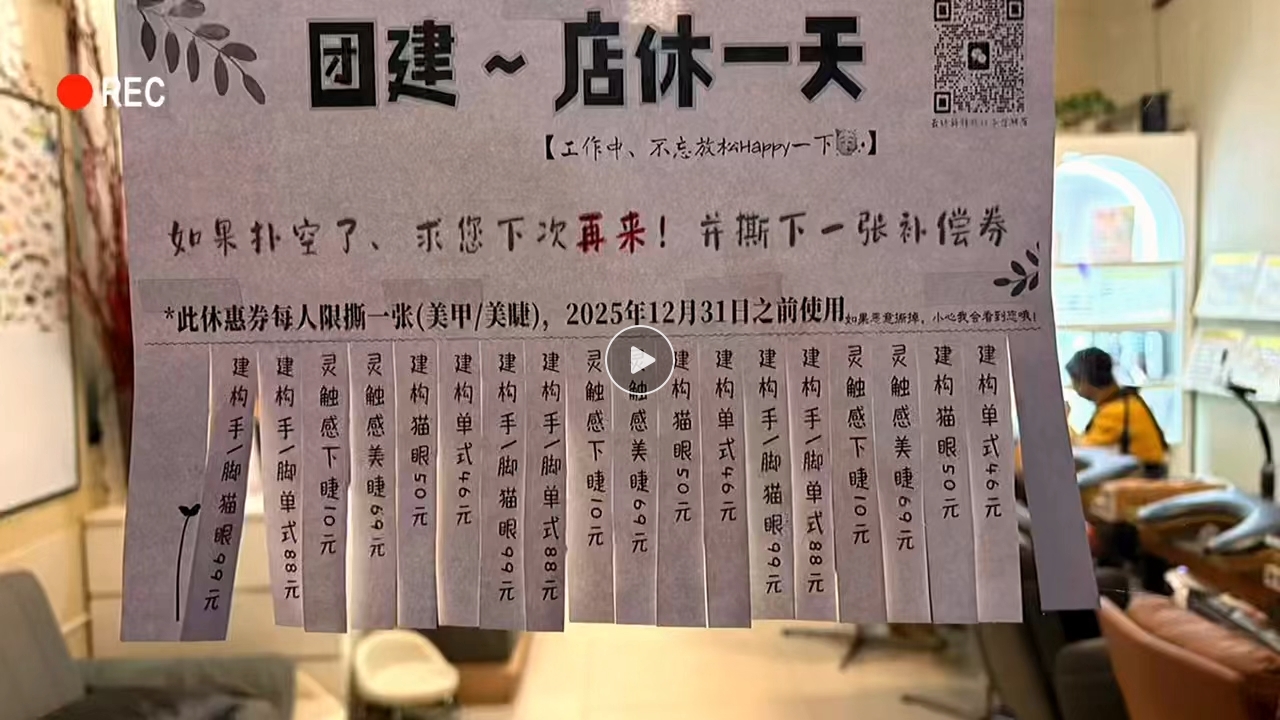 REC
团建~店休一天
【工作中、不忘放松Happy一下】
如果扑空了、求您下次再来！并撕下一张补偿券
*此休惠券每人限撕一张(美甲/美睫)，2025年12月31日之前使用
如果恶意撕掉，小心我会看到您哦！
建构手\脚猫眼99元
建构手\脚单式88元
灵触感下睫10元
灵触感美睫69元
建构猫眼50元
建构单式46元
建构手\脚猫眼99元
建构手\脚单式88元
灵触感下睫10元
灵触感美睫69元
建构猫眼50元
建构单式46元
建构手\脚猫眼99元
建构手\脚单式88元
灵触感下睫10元
灵触感美睫69元
建构猫眼50元
建构单式46元